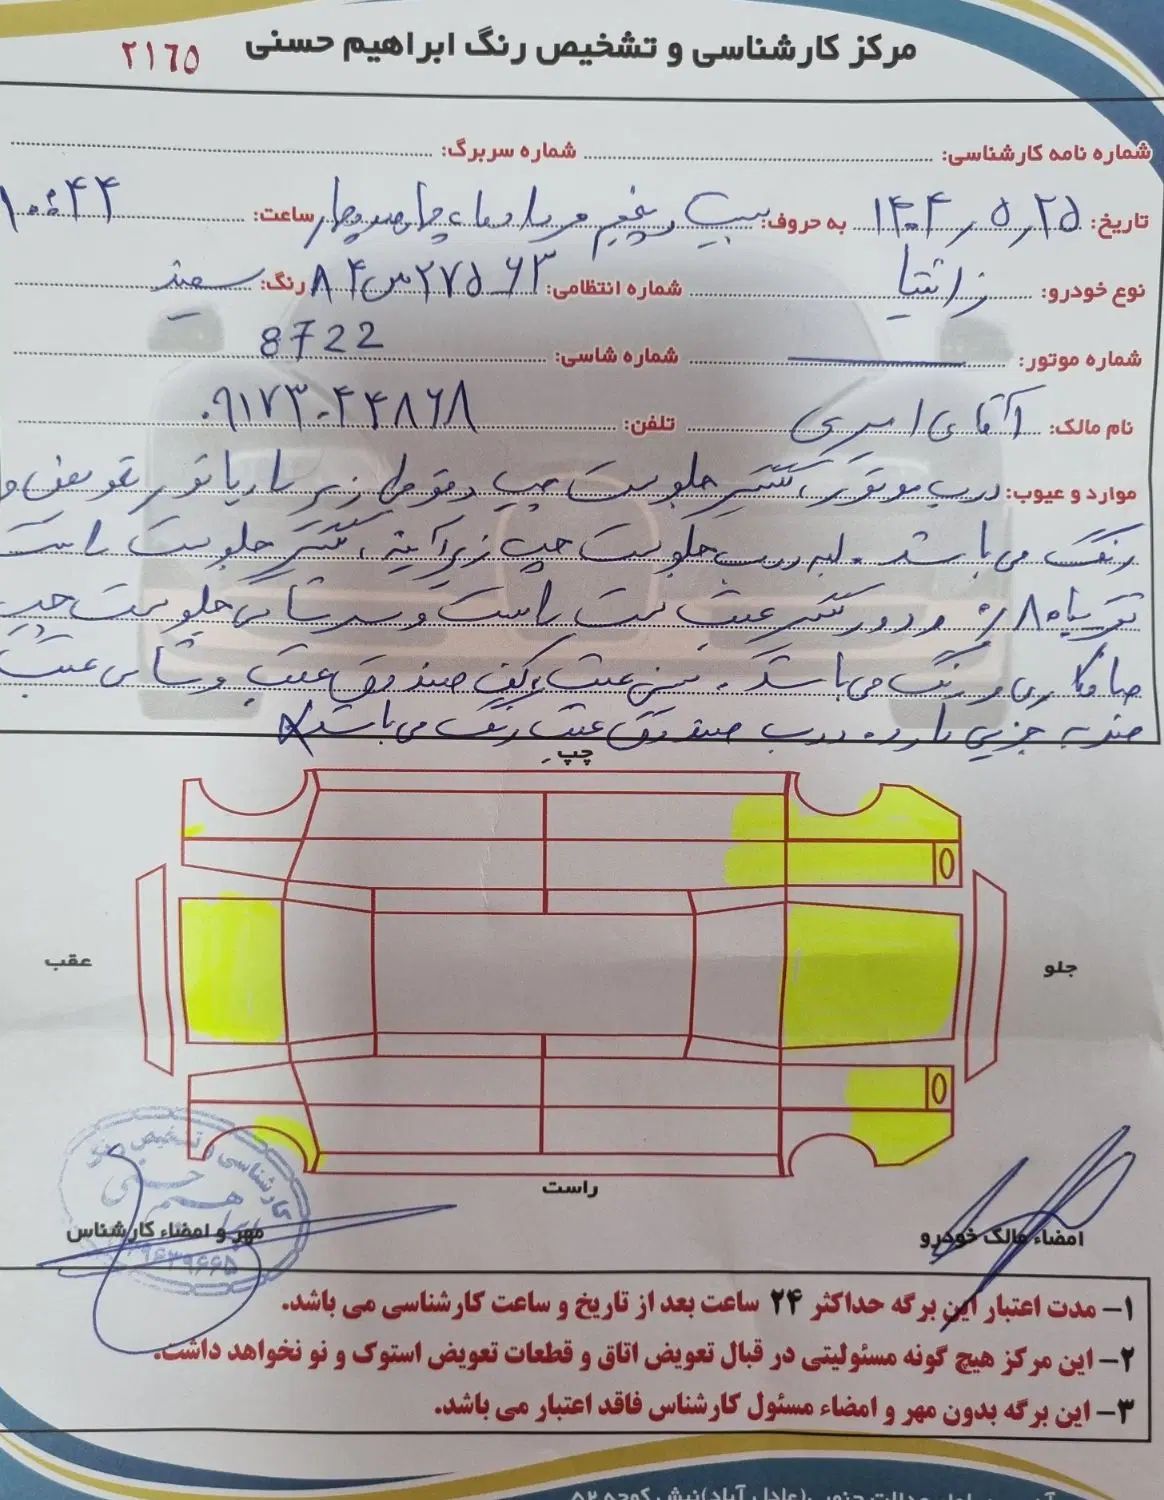 مرکز کارشناسی و تشخیص رنگ ابراهیم حسنی
۲۱٦۵
شماره نامه کارشناسی: شماره سربرگ:
تاریخ: ۱۴۰۴/۵/۲۵ به حروف: بیست و پنجم مرداد ماه چهارصد و چهار ساعت: ۱۰:۴۴
نوع خودرو: زانتیا شماره انتظامی: ۶۳ ۲۷۵س۸۴ رنگ: سفید
شماره موتور: شماره شاسی: 8722
نام مالک: آقای امیری تلفن: ۰۹۱۷۳۰۴۴۸۶۸
موارد و عیوب: درب موتور، گلگیر جلو سمت چپ و زیر تعویض و
رنگ می باشد. لبه درب جلو سمت چپ زیر آینه، گلگیر جلو سمت راست
۸۰٪ و دور گلگیر عقب سمت راست و سرشاسی جلو سمت چپ
صافکاری و رنگ می باشد. سینی عقب، کف صندوق عقب و شاسی عقب
ضربه جزیی دارد. درب صندوق عقب رنگ می باشد
چپ
عقب
جلو
راست
کارشناسی و تشخیص رنگ
ابراهیم حسنی
مهر و امضاء کارشناس
امضاء مالک خودرو
۱- مدت اعتبار این برگه حداکثر ۲۴ ساعت بعد از تاریخ و ساعت کارشناسی می باشد.
۲- این مرکز هیچ گونه مسئولیتی در قبال تعویض اتاق و قطعات تعویض استوک و نو نخواهد داشت.
۳- این برگه بدون مهر و امضاء مسئول کارشناس فاقد اعتبار می باشد.